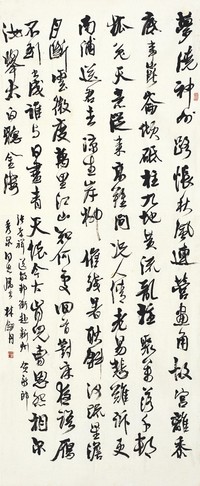 夢繞神州路悵秋風連營畫角故宮離黍
底事崑崙傾砥柱九地黃流亂注聚萬落千邨
狐兔天意從來高難問況人情老易悲難訴更
南浦送君去涼生岸柳催殘暑耿斜河疏星澹
月斷雲微度萬里江山知何處回首對床夜語雁
不到書成誰與目盡青天懷今古肯兒曹恩怨相尔
汝舉大白聽金縷
送胡邦衡赴新州賀新郎